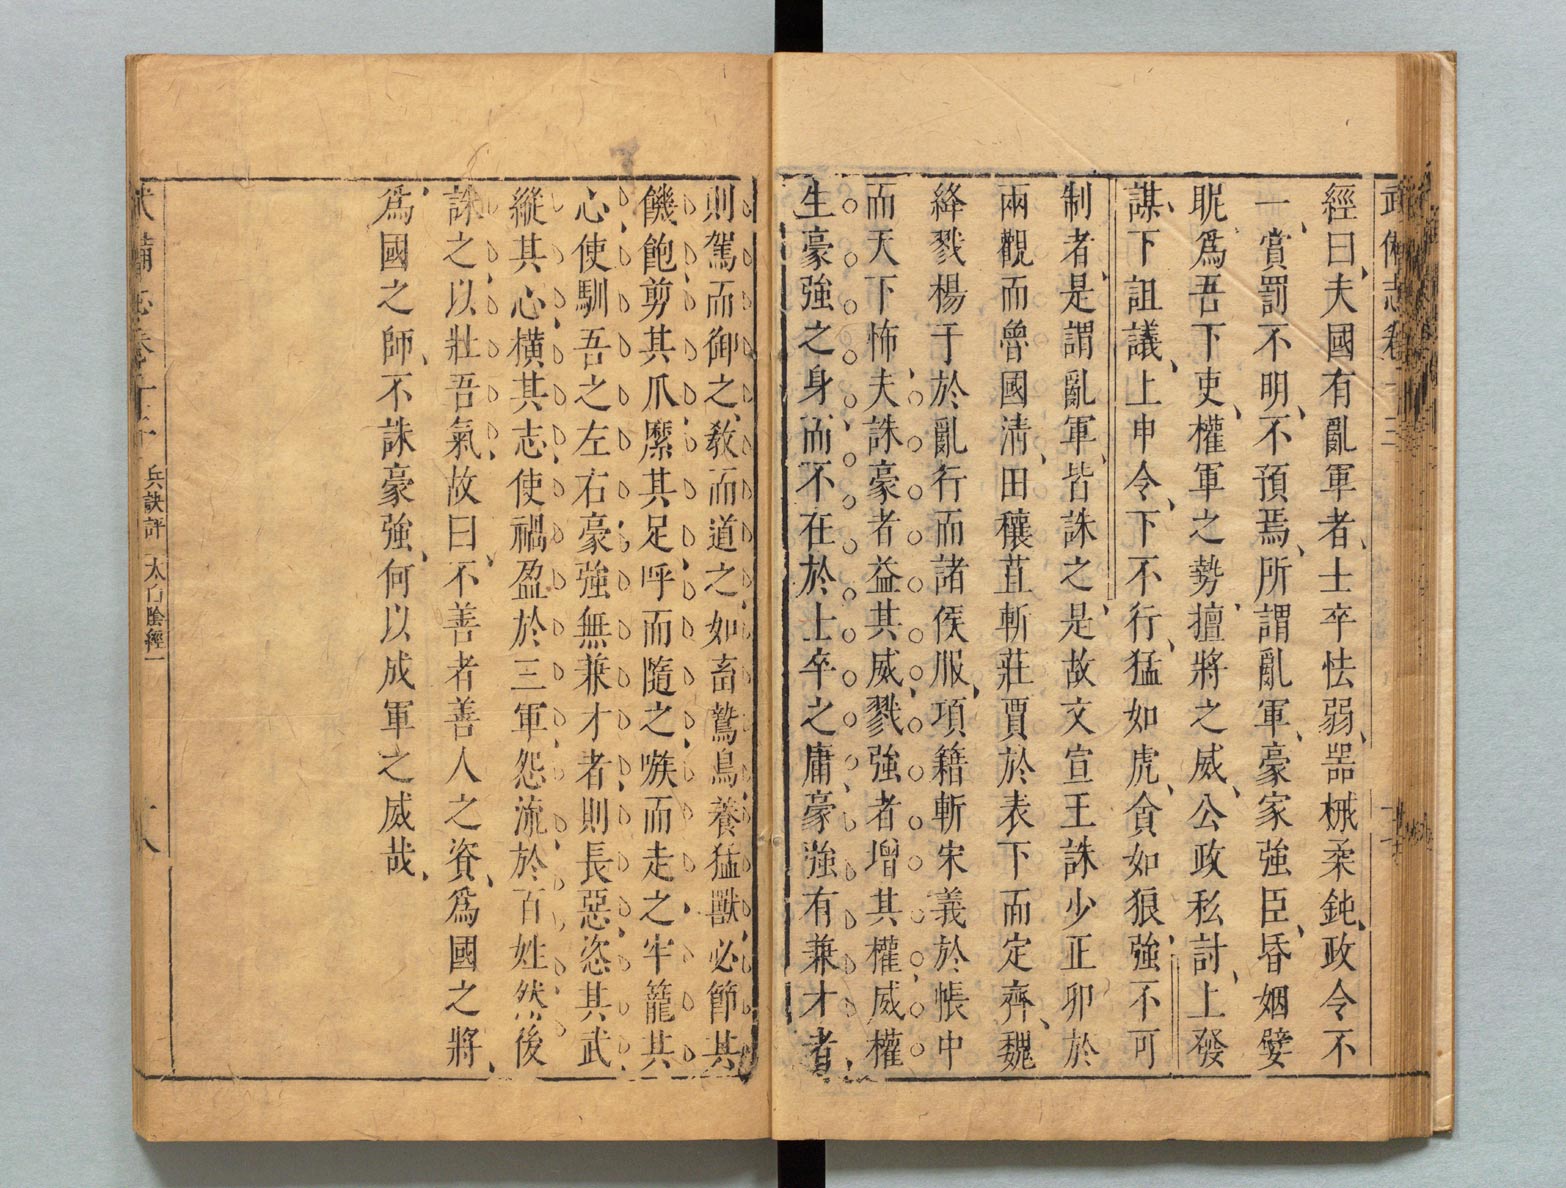 武備志卷
經曰夫國有亂軍者士卒怯弱器械柔鈍政令不
一賞罰不明不預焉所謂亂軍豪家強臣昏姻嬖
昵爲吾下吏權軍之勢擅將之威公政私討上發
謀下詛議上申令下不行猛如虎貪如狼強不可
制者是謂亂軍皆誅之是故文宣王誅少正卯於
兩觀而魯國清田穰苴斬莊賈於表下而定齊魏
絳戮楊于於亂行而諸侯服項籍斬宋義於帳中
而天下怖夫誅豪者益其威戮強者增其權威權
生豪強之身而不在於士卒之庸豪強有兼才者
則駕而御之教而道之如畜鷙鳥養猛獸必節其
饑飽剪其爪縻其足呼而隨之嗾而走之牢籠其
心使馴吾之左右豪強無兼才者則長惡恣其武
縱其心橫其志使禍盈於三軍怨流於百姓然後
誅之以壯吾氣故曰不善者善人之資爲國之將
爲國之師不誅豪強何以成軍之威哉
武備志卷 兵訣評 太白陰經一 十八